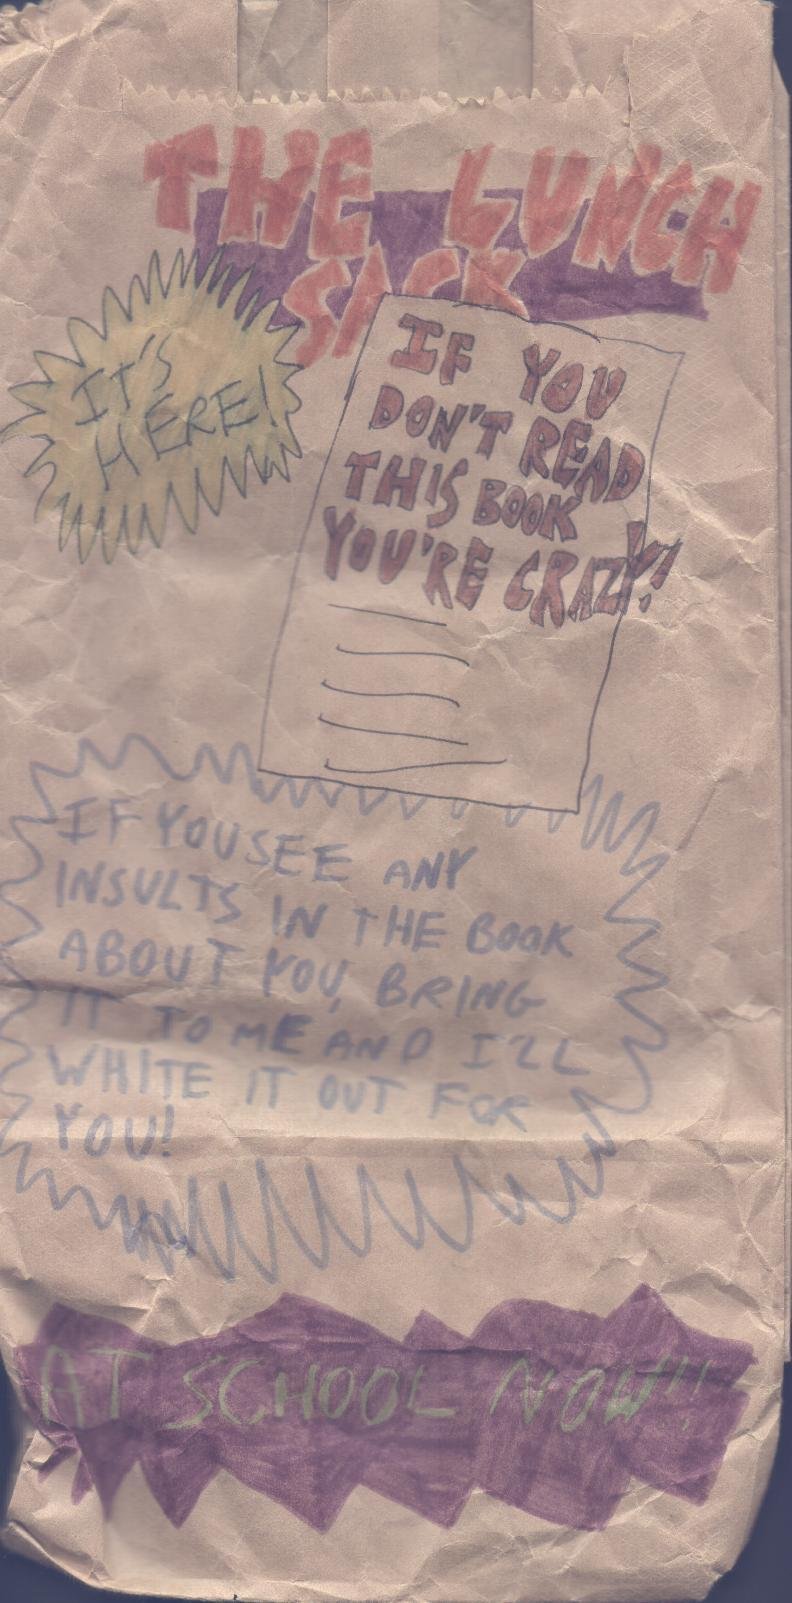 THE LUNCH
SACK
IT'S
HERE!
IF YOU
DON'T READ
THIS BOOK
YOU'RE CRAZY!
IF YOU SEE ANY
INSULTS IN THE BOOK
ABOUT YOU, BRING
IT TO ME AND I'LL
WHITE IT OUT FOR
YOU!
AT SCHOOL NOW!!